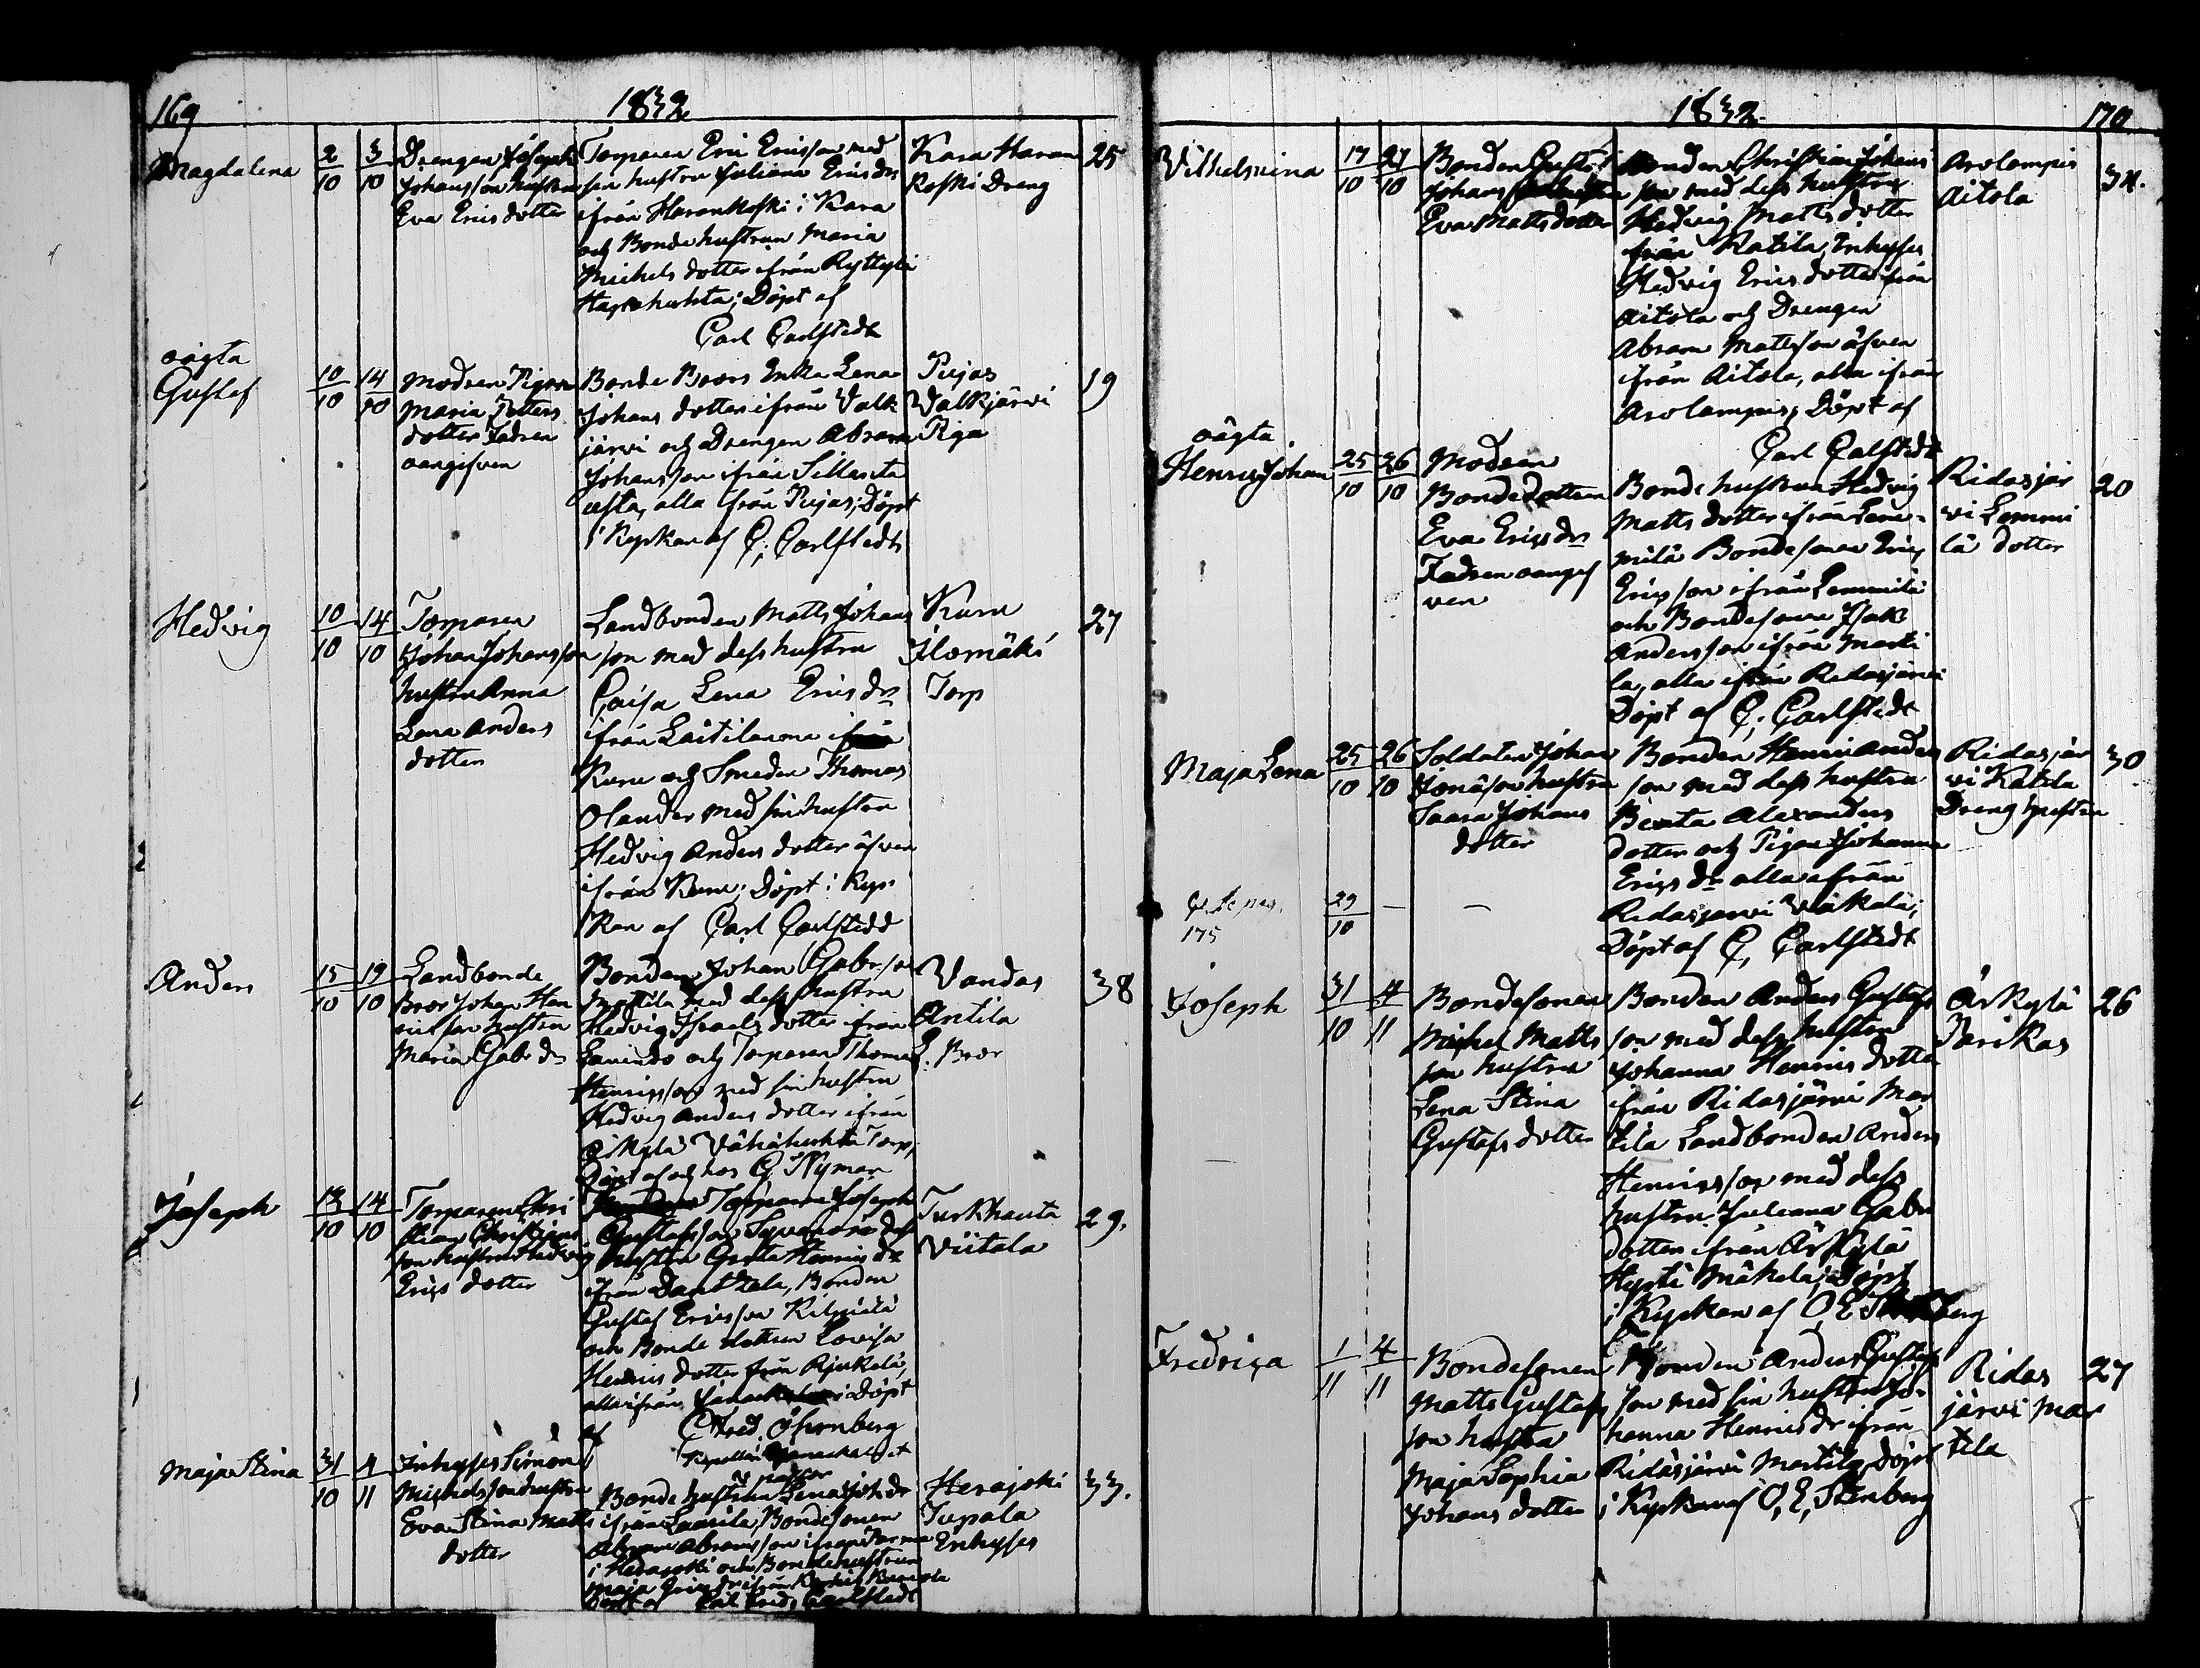 169
1832
Magdalena
2/10
3/10
Drengen Joseph
Johansson hustru
Eva Ericsdotter
Torparen Eric Ericsson med
sin hustru Juliana Ericsdr
ifrån Haronkoski i Kara
och Bondehustrun Maria
Michelsdotter ifrån Ryttylä
Döpt af
Carl Carlstedt
Kara Haron
koski Dreng
25
oägta
Gustaf
10/10
14/10
Modren Pigan
Maria Petters
dotter Fadren
oangifven
Bonde Enka Lena
Johans dotter ifrån Valk
järvi och Drengen Abram
Johansson ifrån Sillasita
usta, alla från Pujas; Döpt
i Kyrkan af C. Carlstedt
Pujas
Valkjärvi
Piga
19
Hedvig
10/10
14/10
Torparen
Johan Johansson
hustru Anna
Lena Anders
dotter
Landbonden Matts Johans
son med dess hustru
Caisa Lena Ericsdr
ifrån
Kuru och Smeden Thomas
Olander med sin hustru
Hedvig Anders dotter äfven
ifrån Kuru; Döpt i Kyr
kan af Carl Carlstedt
Kuru
Ilomäki
Torp
27
Anders
15/10
19/10
Landbonde
Bror Johan Hen
ricsson hustru
Maria Gabr dr
Bonden Johan Gabr.son
Mattila med dess hustru
Hedvig Israels dotter ifrån
och Torparen Thomas
Henricsson med sin hustru
Hedvig Anders dotter ifrån
Vähähuhta Torp,
Döpt af och hos G. Nyman
Vandas
Antila
L. Bror
38
Joseph
13/10
14/10
Torparen Chri
stian Christians
son hustru Hedvig
Erics dotter
Torparen Joseph
Gustafsson dess
hustru Greta Henricsdr
ifrån Bonden
Gustaf Ericsson
och Bonde dottren Lovisa
Henrics dotter från
alla ifrån Döpt
af C Fred. Öhrnberg
Kapellan
pastor
Turkhauta
Viitala
29.
Maja Stina
31/10
4/11
Inhyses Simon
Michelsson hustru
Eva Stina Matts
dotter
Bonde hustrun Lena Joh.dr
ifrån Bondesonen
Abram Abramsson ifrån
i och Bondehustrun
Maja
Döpt af Carl Fred. Carlstedt
Herajoki
Tupala
Enhyses
33.
1832
170
Vilhelmina
17/10
27/10
Bonden Gustaf
Johans
Eva Mattsdotter
Bonden Christian Johans
son med dess hustru
Hedvig Mattsdotter
från Katila, Inhyses
Hedvig Erics dotter från
Aitola och Drengen
Abram Mattsson äfven
ifrån Aitola, alla ifrån
Arolampis; Döpt af
Carl Carlstedt
Arolampis
Aitola
34.
oägta
Henric Johan
25/10
26/10
Modren
Bondedottren
Eva Ericsdr
Fadren oangif
ven
Bonde hustrun Hedvig
Matts dotter ifrån Lem-
milä Bondesonen Eric
Ericsson ifrån Lemmilä
och Bondesonen Isak
Andersson ifrån Marti
la, alla ifrån Ridasjärvi
Döpt af C. Carlstedt
Ridasjär
vi Lemmi
lä dotter
20
Maja Lena
25/10
26/10
Soldaten Johan
Jonäson hustru
Saara Johans
dotter
Bonden Henric Anders
son med dess hustru
Beata Alexanders
dotter och Pigan Johanna
Erics dr alla ifrån
Ridasjärvi
Döpt af C. Carlstedt
Ridasjär
vi Katila
Dreng hustru
30
175
29/10
—
—
Joseph
31/10
4/11
Bondesonen
Michel Matts
son hustru
Lena Stina
Gustafs dotter
Bonden Anders Gustafs
son med dess hustru
Johanna Henrics dotter
ifrån Ridasjärvi Mar
tila Landbonden Anders
Henricsson med dess
hustru Juliana Gabr
dotter ifrån Ärkylä
Mäkelä; Döpt
i Kyrkan af O. E. Stenberg
Ärkylä
Parikas
26
Fredrica
1/11
4/11
Bondesonen
Matts Gustafs
son hustru
Maja Sophia
Johans dotter
Bonden Anders Gustafs
son med sin hustru Jo-
hanna Henricsdr ifrån
Ridasjärvi Martila, Döpt
i Kyrkan af O. E. Stenberg
Ridas
järvi Mar
tila
27